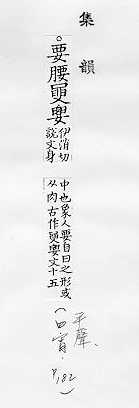 集韻
。要腰
伊消切
說文身
中也象人要自臼之形或
从肉古作
文十五
平聲、
(四宵.
P.182)